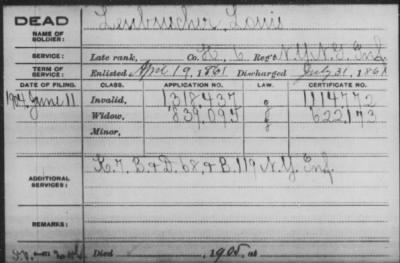 DEAD
NAME OF SOLDIER: Leubuscher, Louis
SERVICE: Late rank, Co. K. 6 Reg't N.Y.N.G. Inf.
TERM OF SERVICE: Enlisted April 19, 1861 Discharged July 31, 1861
DATE OF FILING. CLASS. APPLICATION NO. LAW. CERTIFICATE NO.
1904, June 11 Invalid, 1,318,437 1114772
Widow, 839,095 622,173
Minor,
ADDITIONAL SERVICES: K. 7, B. & D. 68, & B. 119 N.Y. Inf.
REMARKS:
Died 1905, at